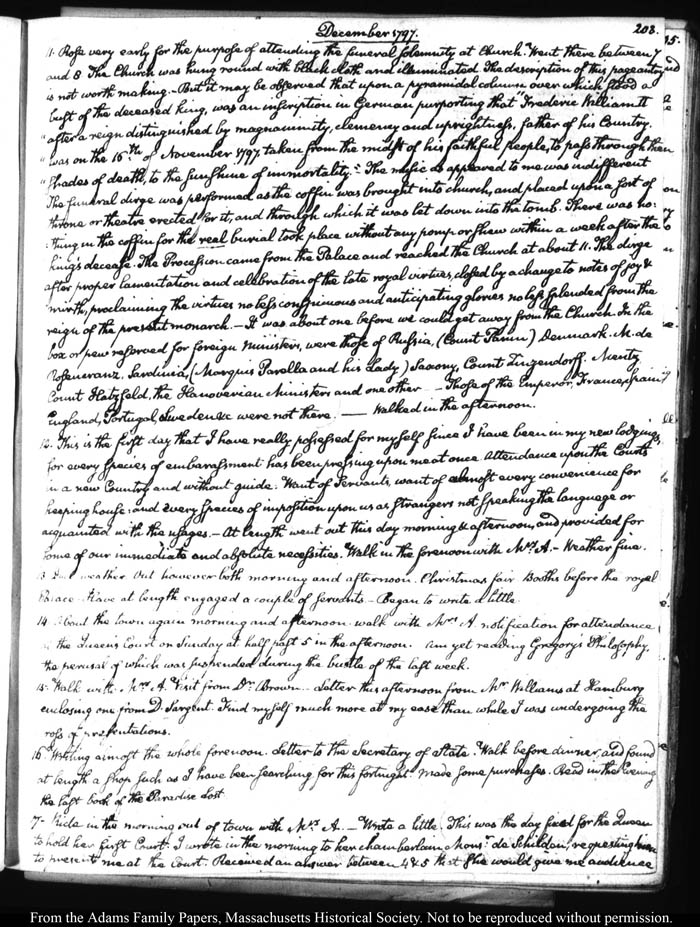 208.
December 1797.
11. Rose very early for the purpose of attending the funeral solemnity at Church. Went there between 7
and 8. The Church was hung round with black cloth and illuminated. The description of this pageantry
is not worth making.— But it may be observed that upon a pyramidal column over which stood a
bust of the deceased king, was an inscription in German purporting that Frederic William II
"after a reign distinguished by magnanimity, clemency and uprightness, father of his Country.
"was on the 16th. of November 1797. taken from the midst of his faithful people, to pass through the
"shades of death, to the sunshine of immortality." The music as appeared to me was indifferent
The funeral dirge was performed as the coffin was brought into church, and placed upon a sort of
throne or theatre erected for it, and through which it was let down into the tomb. There was no-
thing in the coffin for the real burial took place without any pomp or shew within a week after the
king's decease. The Procession came from the Palace and reached the Church at about 11. The dirge
after proper lamentation and celebration of the late royal virtues, closed by a change to notes of joy &
mirth, proclaiming the virtues no less conspicuous and anticipating glories no less splendid from the
reign of the present monarch.— It was about one before we could get away from the Church. In the
box or pew reserved for foreign ministers, were those of Russia, (Count Panin) Denmark. M. de
Rosencranz. Sardinia, (Marquis Parella and his Lady) Saxony, Count Zinzendorff. Mentz
Count Hatzfeld, the Hanoverian Ministers and one other — Those of the Emperor, France, Spain
England, Portugal, Sweden &c were not there. — Walked in the afternoon.
12. This is the first day that I have really possessed for myself since I have been in my new lodgings,
for every species of embarassment has been pressing upon me at once. Attendance upon the Courts
in a new Country and without guide. Want of Servants, want of almost every convenience for
keeping house: and every species of imposition upon us as strangers not speaking the language or
acquainted with the usages.— At length went out this day morning & afternoon, and provided for
some of our immediate and absolute necessities. Walk in the forenoon with Mrs. A.— Weather fine.
13. weather. Out however both morning and afternoon. Christmas fair Booths before the royal
Palace. Have at length engaged a couple of servants.— Began to write a little.
14. About the town again morning and afternoon walk with Mrs. A notification for attendance
the Queen's Court on Sunday at half past 5 in the afternoon. Am yet reading Gregory's Philosophy,
the perusal of which was suspended during the bustle of the last week.
15. Walk with Mrs. A. Visit from Dr. Brown.— Letter this afternoon from Mr. Williams at Hamburg
enclosing one from D. Sargent. Find myself much more at my ease than while I was undergoing the
of presentations.
16. Writing almost the whole forenoon. Letter to the Secretary of State. Walk before dinner, and found
at length a shop such as I have been searching for this fortnight. Made some purchases. Read in the Evening
the last book of the Paradise Lost.
17. Ride in the morning out of town with Mrs. A.— Wrote a little. This was the day fixed for the Queen
to hold her first Court. I wrote in the morning to her chamberlain Monsr. de Schilden, requesting
to present me at the Court. Received an answer between 4 & 5 that she would give me audience
From the Adams Family Papers, Massachusetts Historical Society. Not to be reproduced without permission.